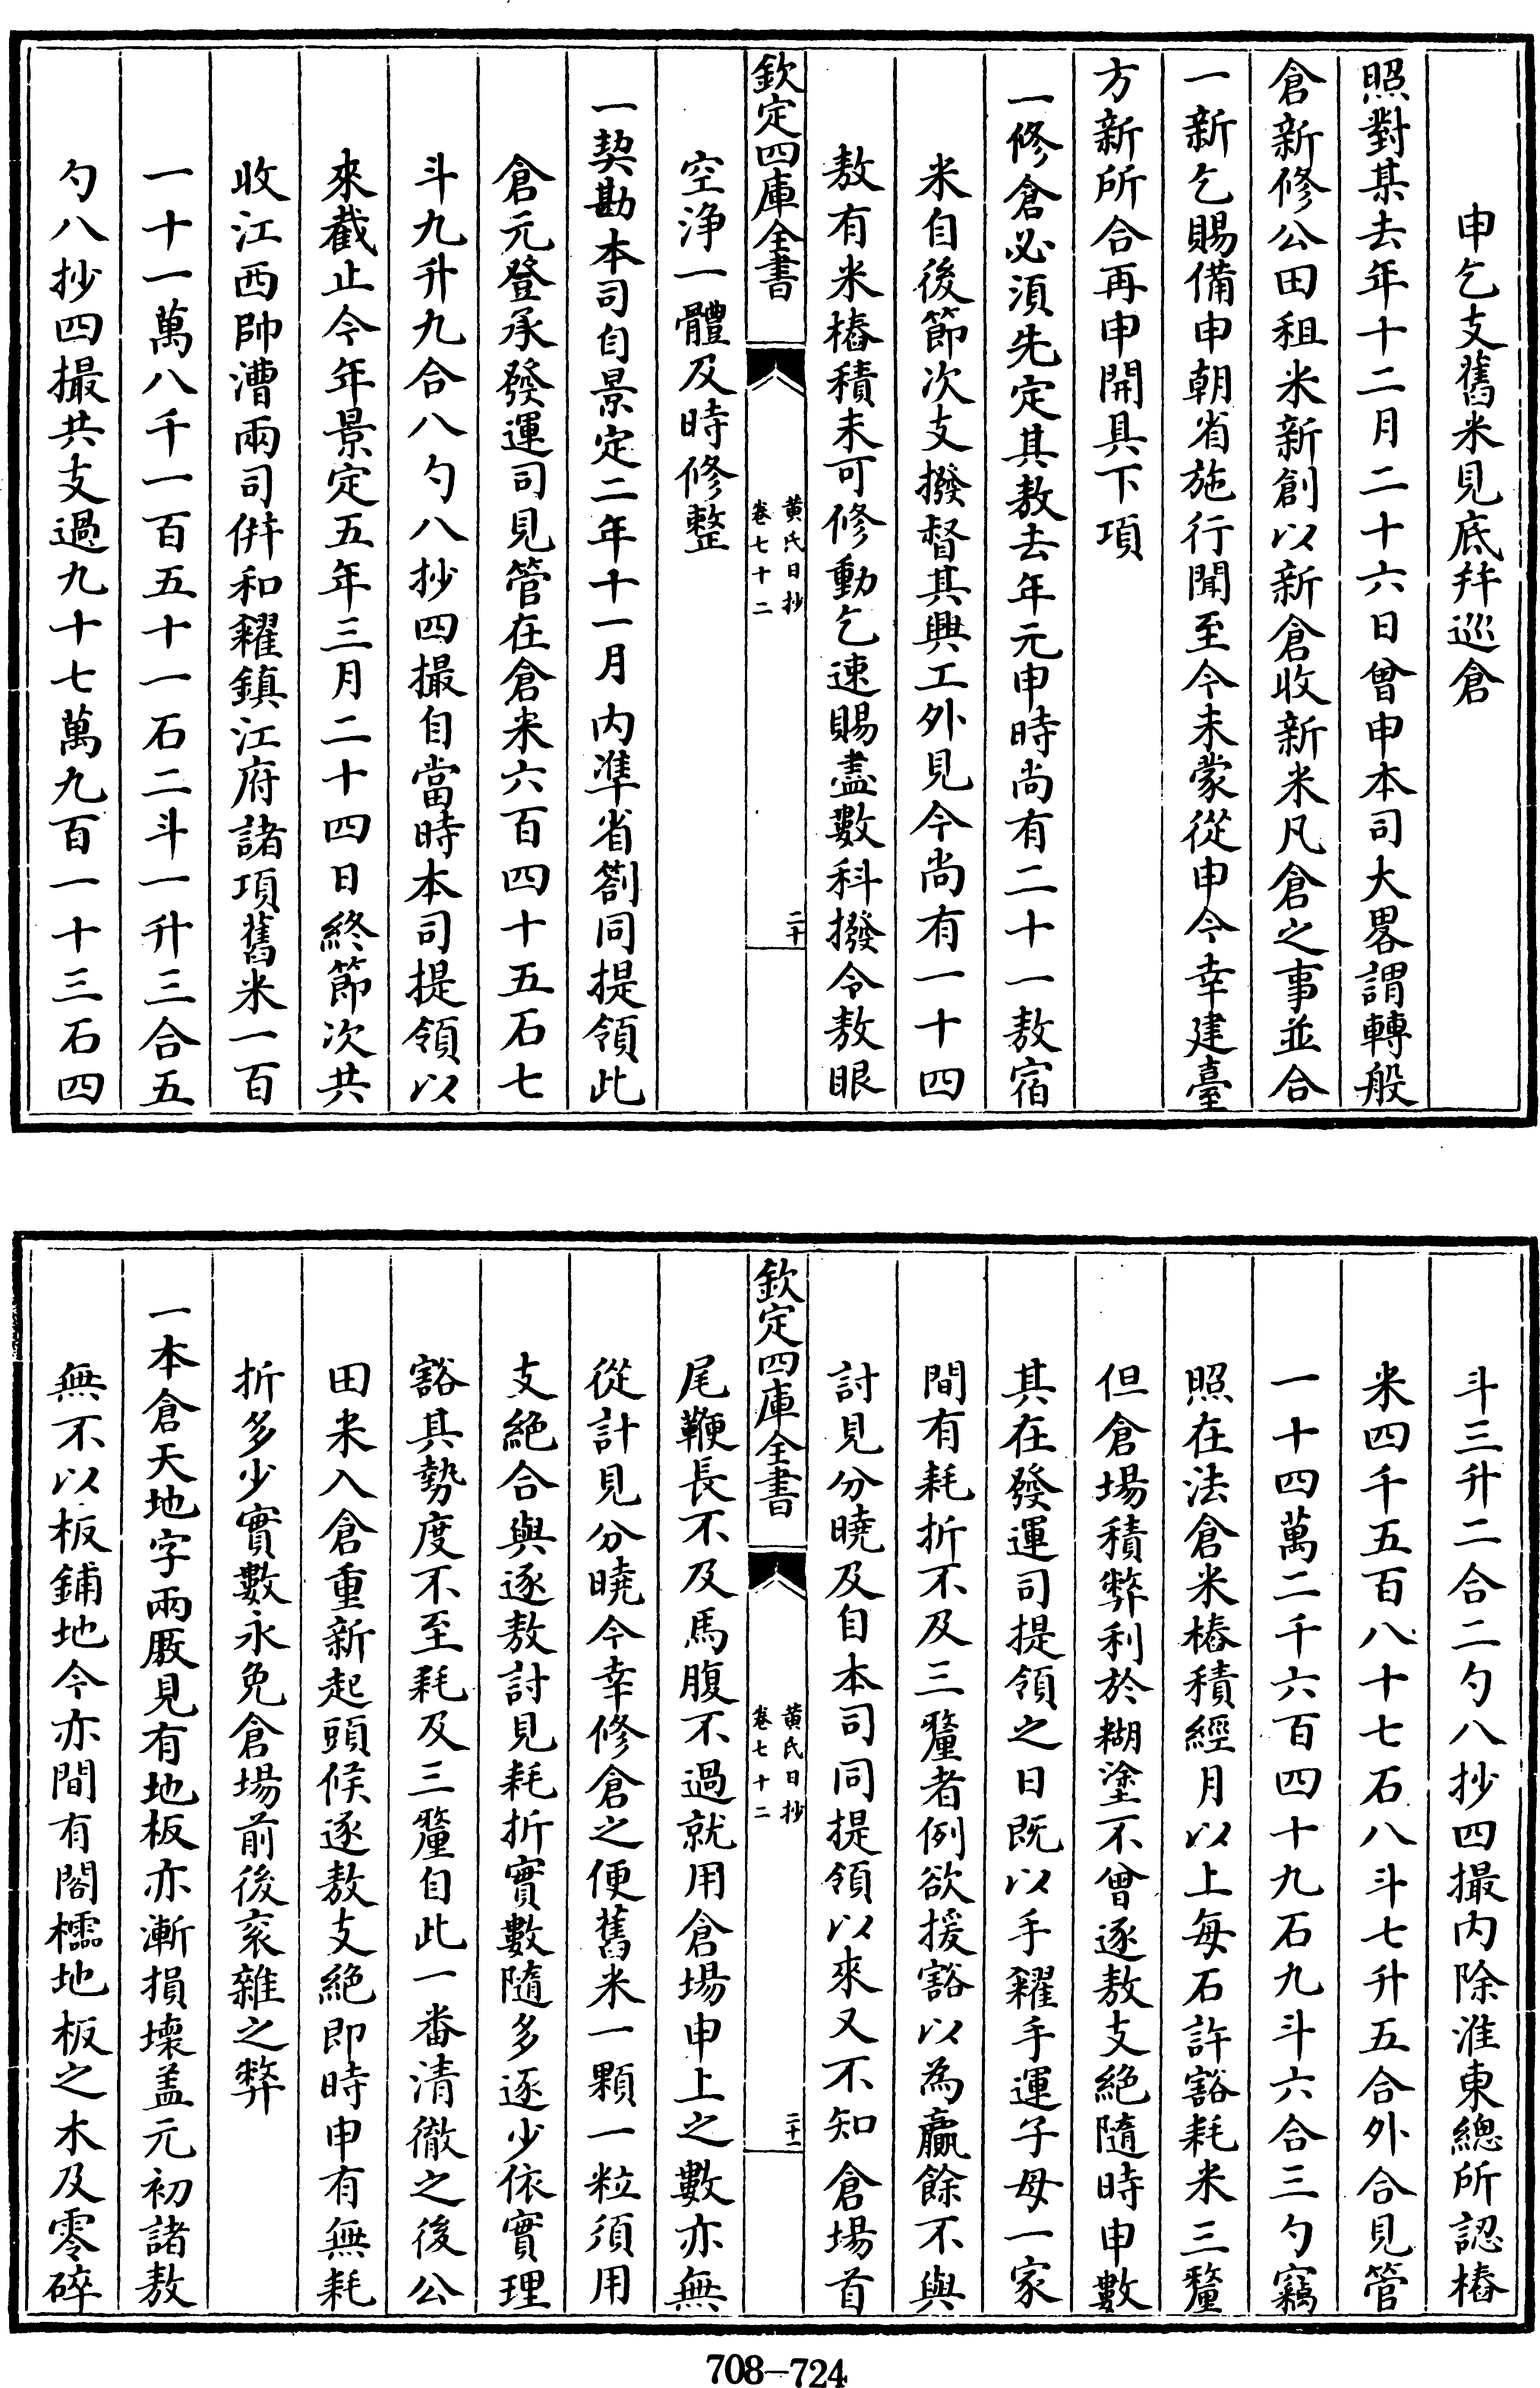 申乞支舊米見底幷巡倉
照對某去年十二月二十六日曾申本司大畧謂轉般
倉新修公田租米新創以新倉收新米凡倉之事並合
一新乞賜備申朝省施行聞至今未蒙從申今幸建臺
方新所合再申開具下項
一修倉必須先定其敖去年元申時尚有二十一敖宿
米自後節次支撥督其興工外見今尚有一十四
敖有米樁積未可修動乞速賜盡數科撥令敖眼
欽定四庫全書
黄氏日抄
卷七十二
二十
空浄一體及時修整
一契勘本司自景定二年十一月內準省劄同提領此
倉元登承發運司見管在倉米六百四十五石七
斗九升九合八勺八抄四撮自當時本司提領以
來截止今年景定五年三月二十四日終節次共
收江西帥漕兩司併和糴鎮江府諸項舊米一百
一十一萬八千一百五十一石二斗一升三合五
勺八抄四撮共支過九十七萬九百一十三石四
斗三升二合二勺八抄四撮內除淮東總所認樁
米四千五百八十七石八斗七升五合外合見管
一十四萬二千六百四十九石九斗六合三勺竊
照在法倉米樁積經月以上每石許豁耗米三釐
但倉場積弊利於糊塗不曾逐敖支絶隨時申數
其在發運司提領之日既以手糴手運子母一家
間有耗折不及三釐者例欲援豁以為贏餘不與
討見分曉及自本司同提領以來又不知倉場首
欽定四庫全書
黄氏日抄
卷七十二
二十一
尾鞭長不及馬腹不過就用倉場申上之數亦無
從計見分曉今幸修倉之便舊米一顆一粒須用
支絶合與逐敖討見耗折實數隨多逐少依實理
豁其勢度不至耗及三釐自此一番清徹之後公
田米入倉重新起頭候逐敖支絶即時申有無耗
折多少實數永免倉場前後衮雜之弊
一本倉天地字兩厫見有地板亦漸損壞盖元初諸敖
無不以板鋪地今亦間有閣檽地板之木及零碎
708-724